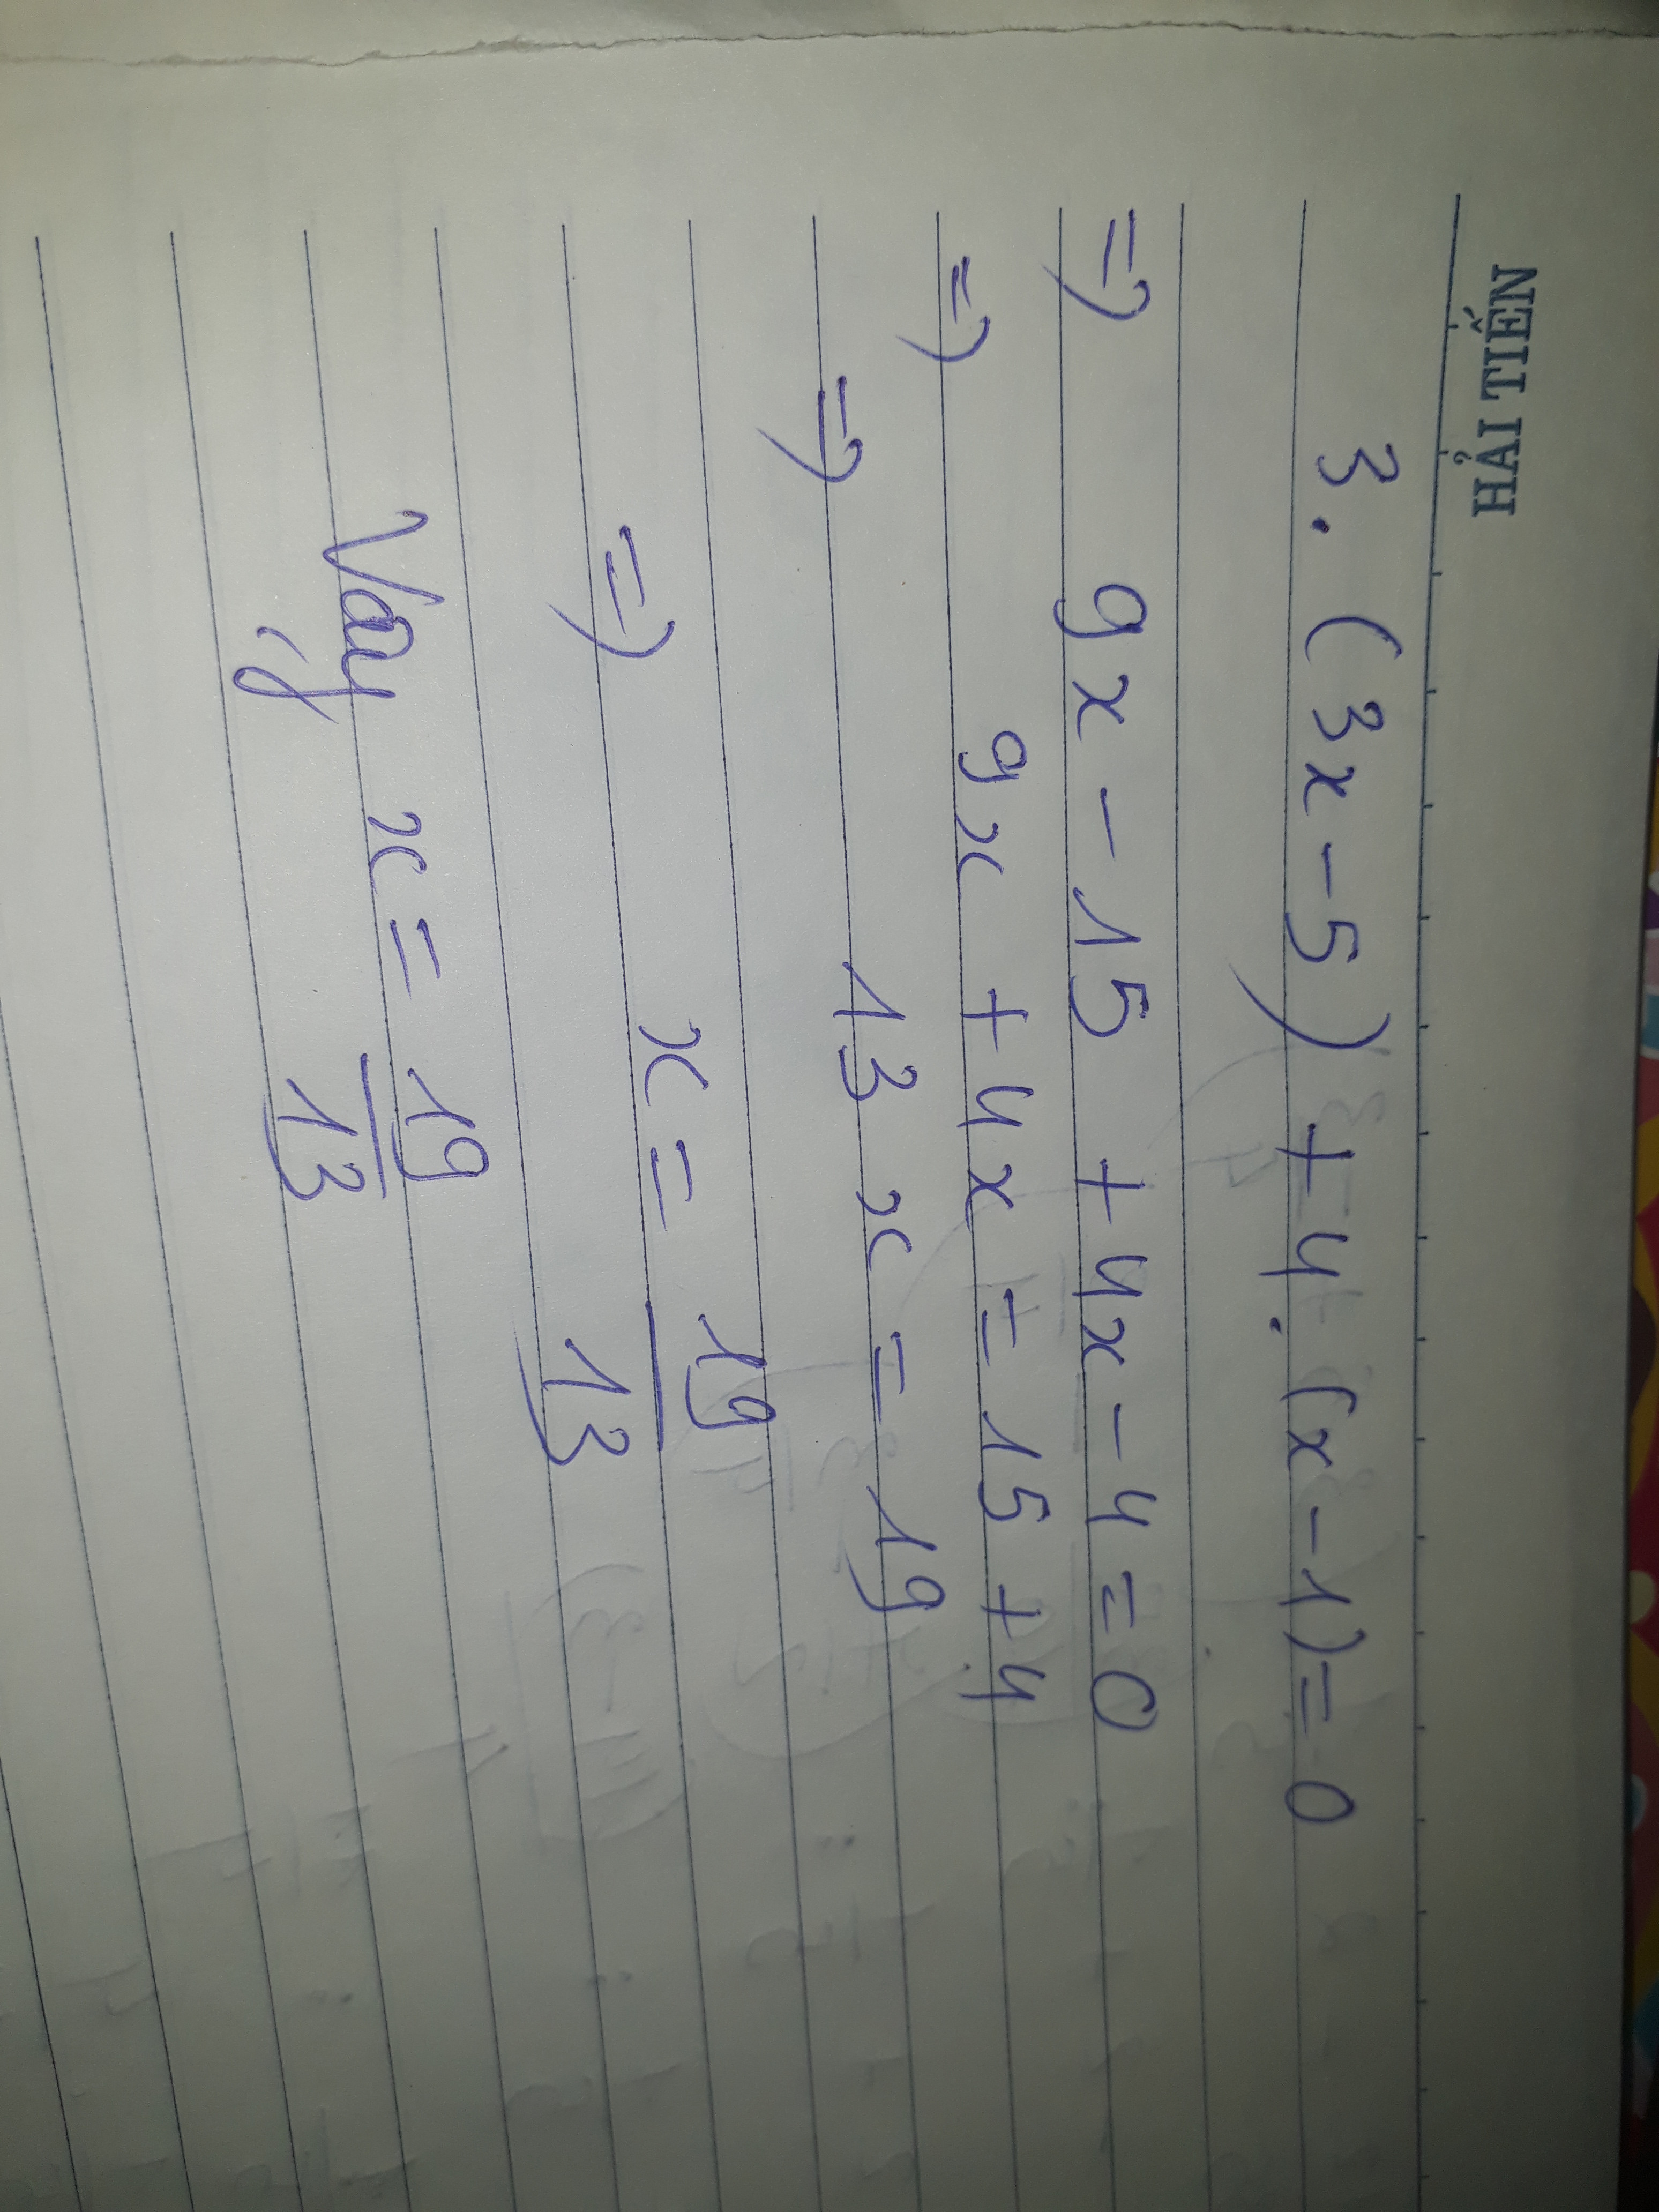 HẢI TIẾN
3. (3x - 5) + 4. (x - 1) = 0
=) 9x - 15 + 4x - 4 = 0
=) 9x + 4x = 15 + 4
=) 13x = 19
=) x = 19/13
Vậy x = 19/13